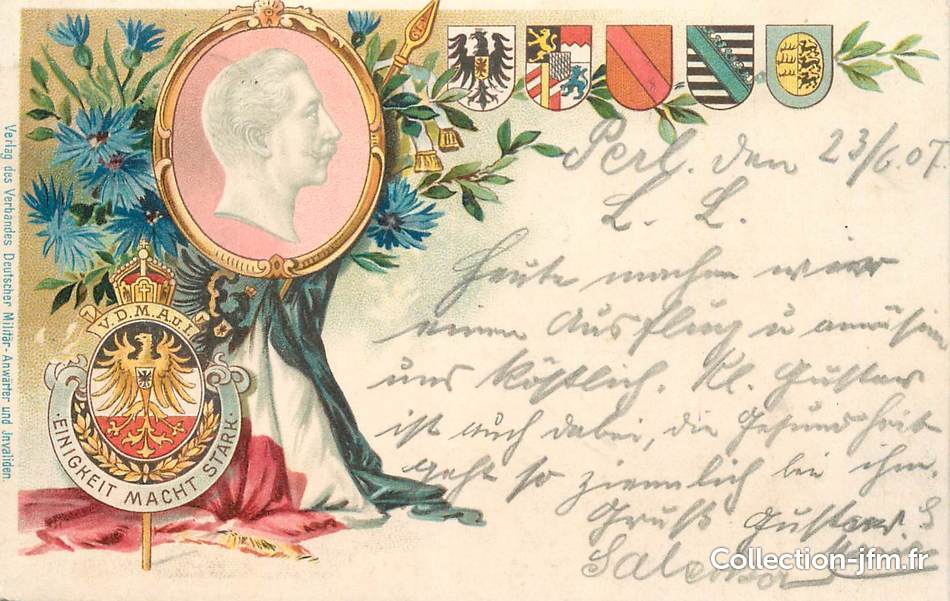 Verlag des Verbandes Deutscher Militär-Anwärter und Invaliden.
V.D.M.A.u.I.
EINIGKEIT MACHT STARK
Perl. den 23/6.07.
L. L.
Heute machen wier
einen Ausflug u amüsiren
uns köstlich. Kl. Gustav
ist auch dabei, die Gesundheit
geht so ziemlich bei ihm.
Gruß Gustav.
Collection-jfm.fr